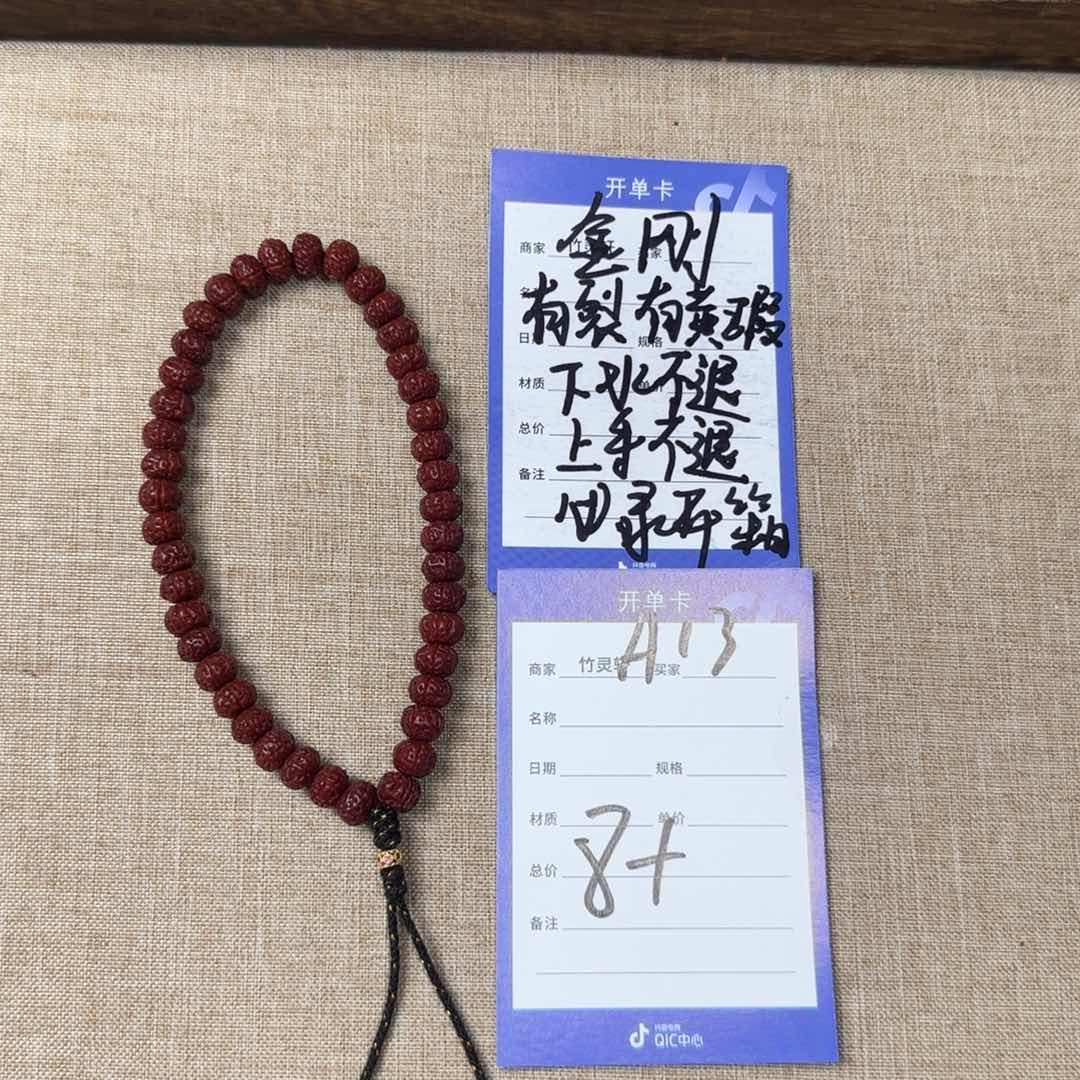 开单卡
金刚
商家 竹灵轩
有裂有黄瑕
日期 规格
材质 下水不退
总价 上手不退
备注
田录开箱
抖音电商
开单卡
A13
商家 竹灵轩 买家
名称
日期 规格
材质 单价
总价 8+
备注
抖音电商
QIC中心